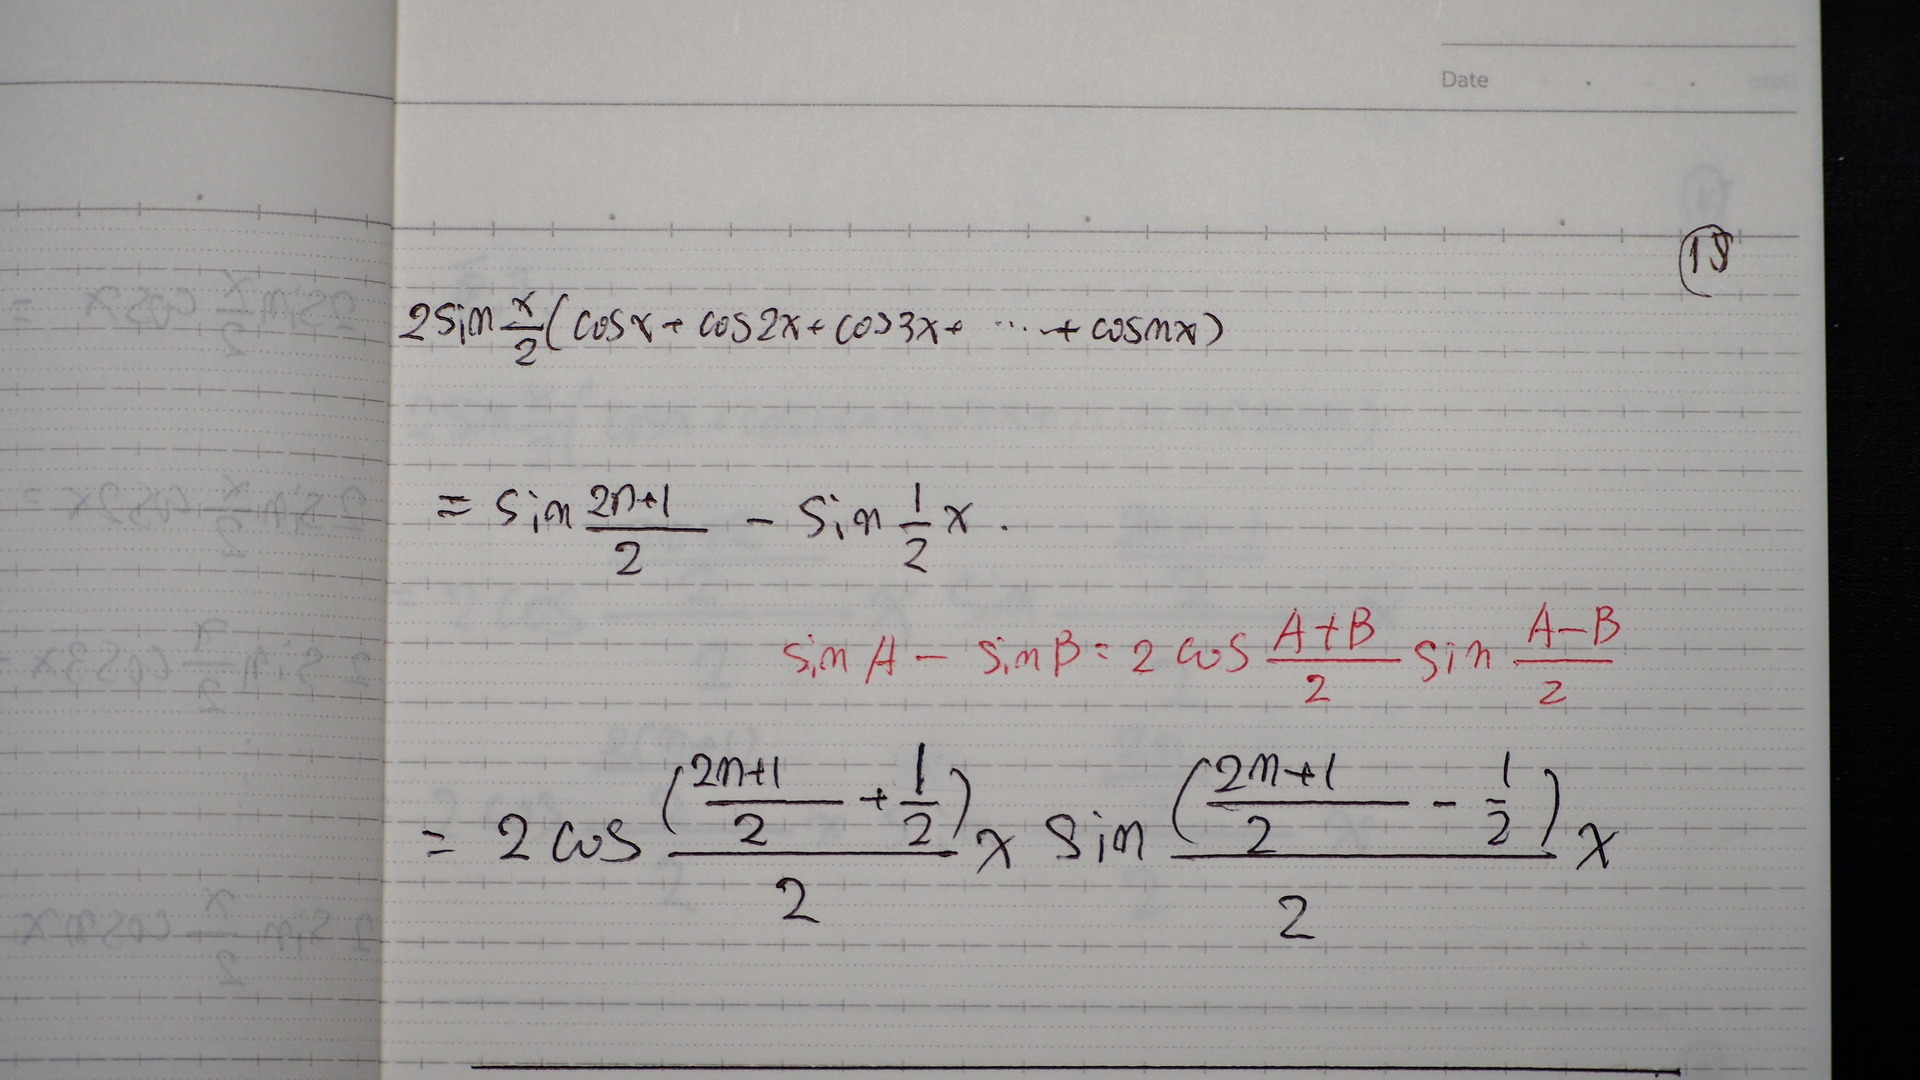 Date
18
2sin x/2 (cosx + cos2x + cos3x + ... + cosnx)
= sin (2n+1)/2 - sin 1/2 x.
sinA - sinB = 2 cos (A+B)/2 sin (A-B)/2
= 2 cos ((2n+1)/2 + 1/2)/2 x sin ((2n+1)/2 - 1/2)/2 x